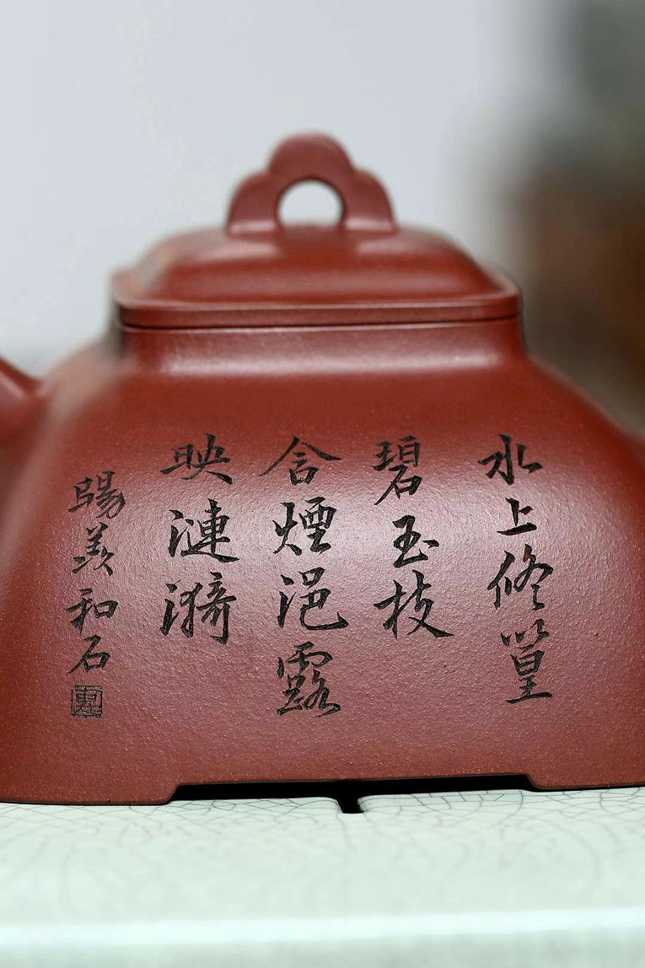 水上修篁
碧玉枝
含煙浥露
映漣漪
羨和石